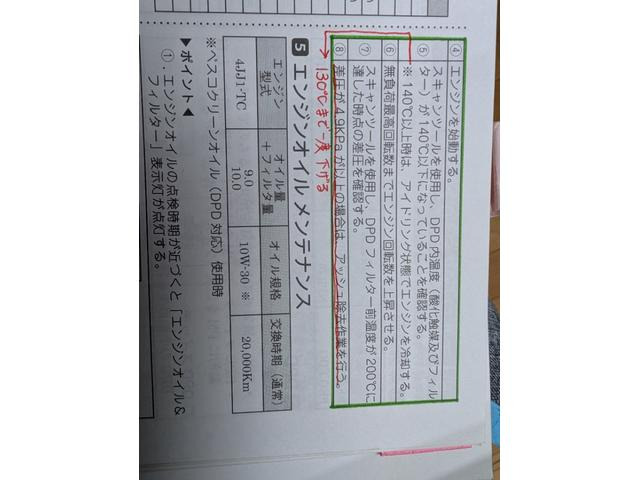 ④ エンジンを始動する。
⑤ スキャンツールを使用し、DPD内温度（酸化触媒及びフィル
ター）が140℃以下になっていることを確認する。
※ 140℃以上時は、アイドリング状態でエンジンを冷却する。
⑥ 無負荷最高回転数までエンジン回転数を上昇させる。
⑦ スキャンツールを使用し、DPDフィルター前温度が200℃に
達した時点の差圧を確認する。
⑧ 差圧が4.9KPaが以上の場合は、アッシュ除去作業を行う。
→ 130℃まで一度下げる
5 エンジンオイル メンテナンス
エンジン型式 オイル量＋フィルタ量 オイル規格 交換時期（通常）
4JJ1-TC 9.0 10.0 10W-30 ※ 20,000Km
※ベスコクリーンオイル（DPD対応）使用時
▶ポイント◀
①・エンジンオイルの点検時期が近づくと「エンジンオイル&
フィルター」表示灯が点灯する。